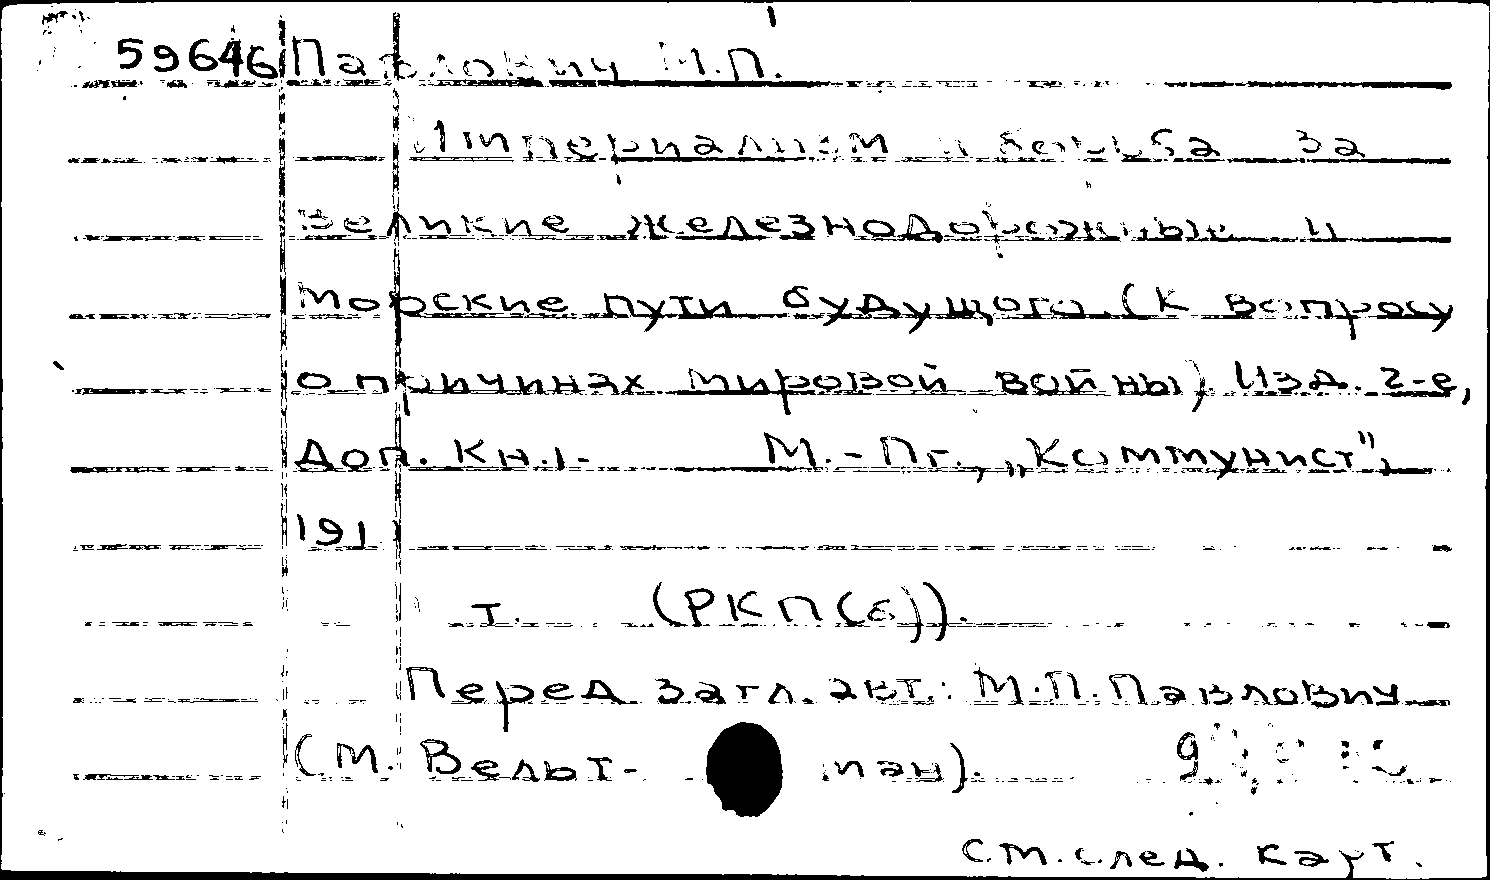 59646 Павлович М.П.
Империализм и борьба за
великие железнодорожные и
морские пути будущего. (К вопросу
о причинах мировой войны). Изд. 2-е,
доп. Кн.1. М.-Пг., „Коммунист",
191
т. (РКП(б)).
Перед загл. авт.: М.П. Павлович
(М. Вельт- ман).
см. след. карт.